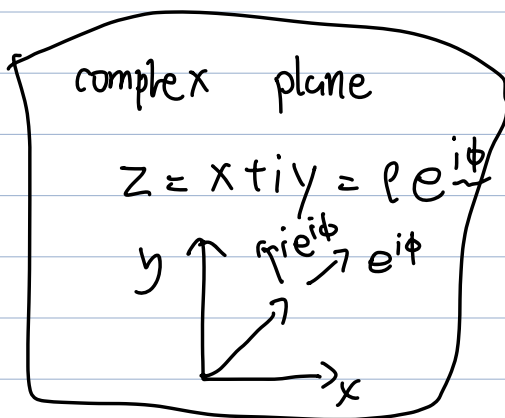 complex plane
z = x + iy = ρe^{iϕ}
y ie^{iϕ} e^{iϕ}
x